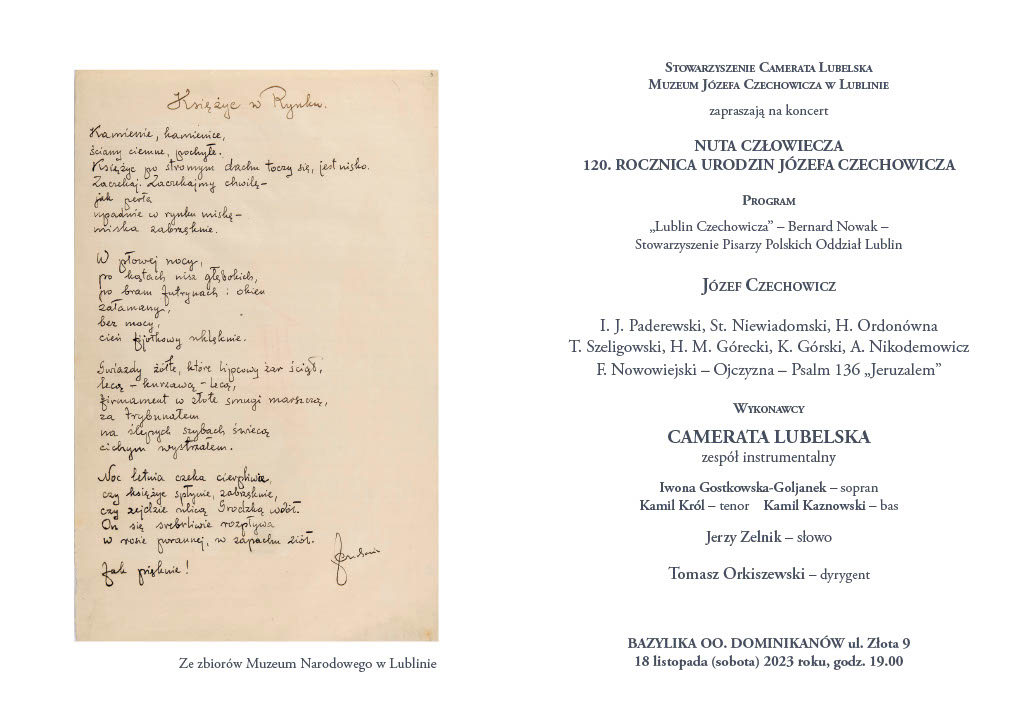 Księżyc w Rynku.
Kamienie, kamienice,
ściany ciemne, pochyłe.
Księżyc po stromym dachu toczy się, jest nisko.
Zaczekaj. Zaczekajmy chwilę–
jak perła
upadnie w rynku miskę–
miska zabrzęknie.
W płowej nocy,
po kątach nisz głębokich,
po bram futrynach i okien
załamany,
bez mocy,
cień fijołkowy uklęknie.
Gwiazdy żółte, które lipcowy żar ściął,
lecą – kurzawą – lecą,
firmament w złote smugi marszczą,
za Trybunałem
na ślepych szybach świecą
cichym wystrzałem.
Noc letnia czeka cierpliwie,
czy księżyc spłynie, zabrzęknie,
czy zejdzie ulicą Grodzką wdół.
On się srebrliwie rozpływa
w rosie porannej, w zapachu ziół.
Jak pięknie!
Ze zbiorów Muzeum Narodowego w Lublinie
Stowarzyszenie Camerata Lubelska
Muzeum Józefa Czechowicza w Lublinie
zapraszają na koncert
NUTA CZŁOWIECZA
120. ROCZNICA URODZIN JÓZEFA CZECHOWICZA
Program
„Lublin Czechowicza” – Bernard Nowak –
Stowarzyszenie Pisarzy Polskich Oddział Lublin
Józef Czechowicz
I. J. Paderewski, St. Niewiadomski, H. Ordonówna
T. Szeligowski, H. M. Górecki, K. Górski, A. Nikodemowicz
F. Nowowiejski – Ojczyzna – Psalm 136 „Jeruzalem”
Wykonawcy
CAMERATA LUBELSKA
zespół instrumentalny
Iwona Gostkowska-Goljanek – sopran
Kamil Król – tenor Kamil Kaznowski – bas
Jerzy Zelnik – słowo
Tomasz Orkiszewski – dyrygent
BAZYLIKA OO. DOMINIKANÓW ul. Złota 9
18 listopada (sobota) 2023 roku, godz. 19.00